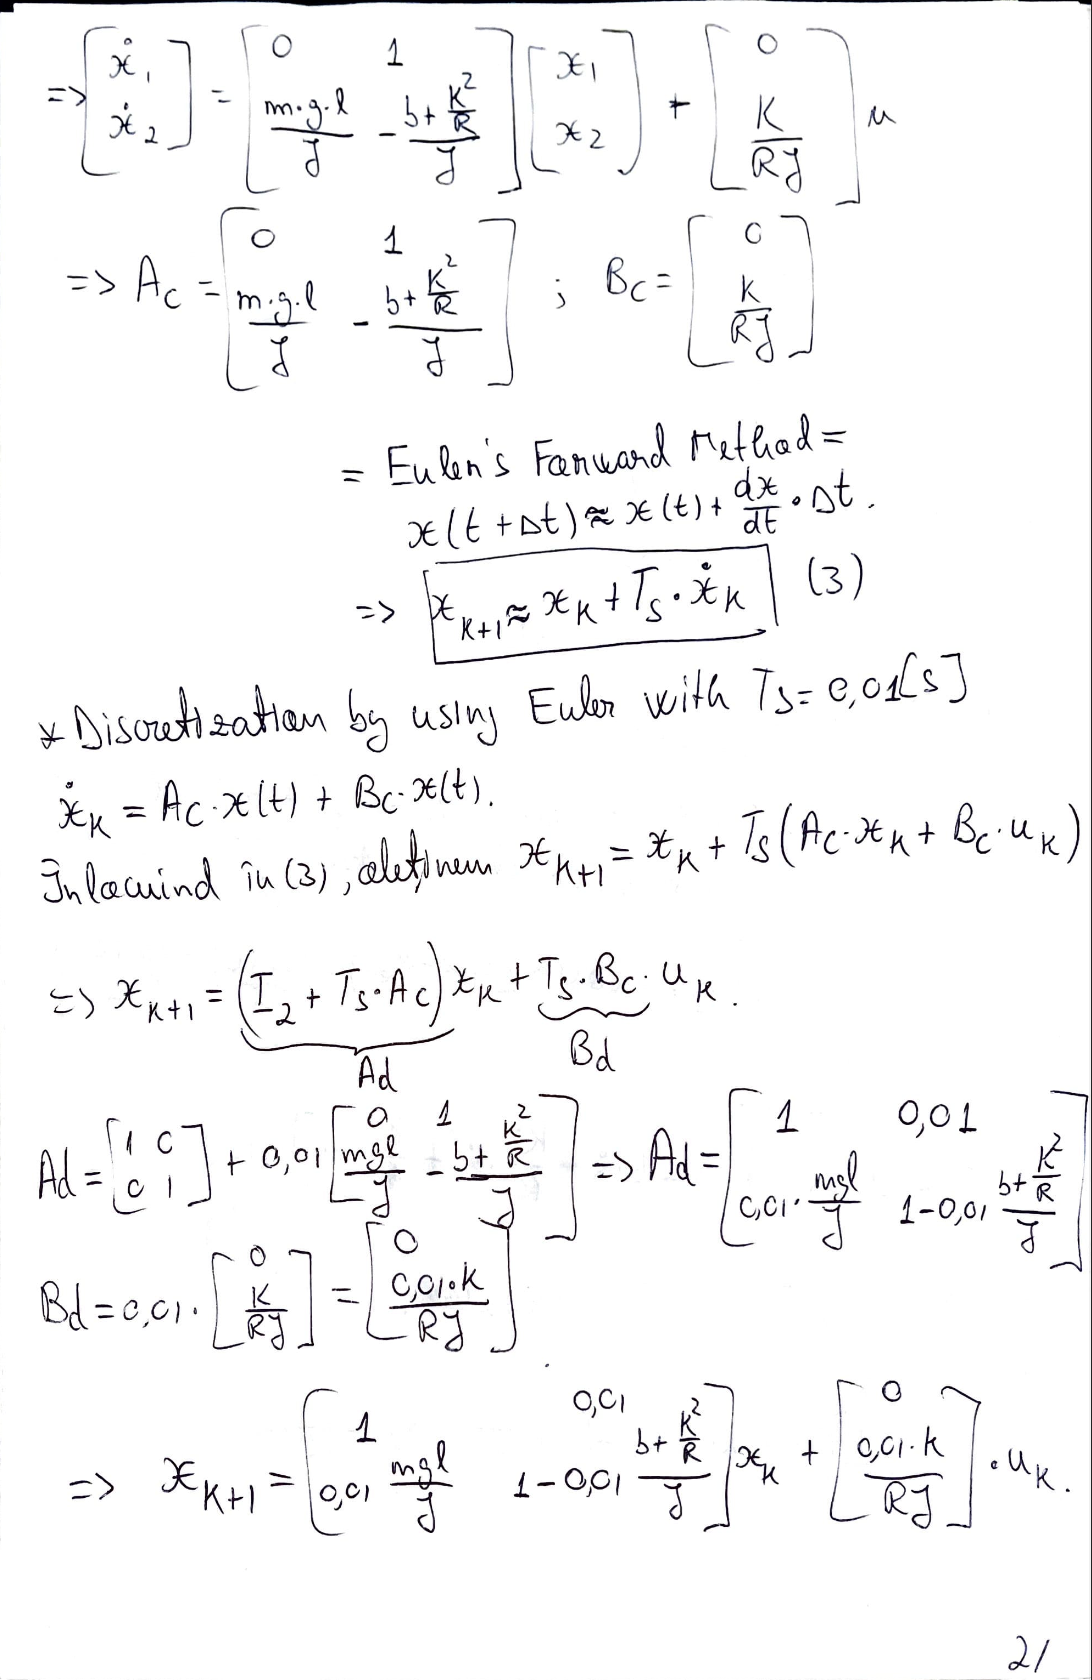 => [ẋ₁ ; ẋ₂] = [0 1 ; m·g·l/J -(b+K²/R)/J] [x₁ ; x₂] + [0 ; K/RJ] u
=> Ac = [0 1 ; m·g·l/J -(b+K²/R)/J] ; Bc = [0 ; K/RJ]
= Euler's Forward Method =
x(t+Δt) ≈ x(t) + dx/dt · Δt.
=> x_{K+1} ≈ x_K + Ts · ẋ_K (3)
* Discretization by using Euler with Ts = 0,01[s]
ẋ_K = Ac·x(t) + Bc·x(t).
Inlocuind în (3), obtinem x_{K+1} = x_K + Ts(Ac·x_K + Bc·u_K)
=> x_{K+1} = (I₂ + Ts·Ac) x_K + Ts·Bc·u_K.
Ad Bd
Ad = [1 0 ; 0 1] + 0,01 [0 1 ; mgl/J -(b+K²/R)/J] => Ad = [1 0,01 ; 0,01·mgl/J 1-0,01 (b+K²/R)/J]
Bd = 0,01· [0 ; K/RJ] = [0 ; 0,01·K/RJ]
=> x_{K+1} = [1 0,01 ; 0,01 mgl/J 1-0,01 (b+K²/R)/J] x_K + [0 ; 0,01·K/RJ] · u_K.
21